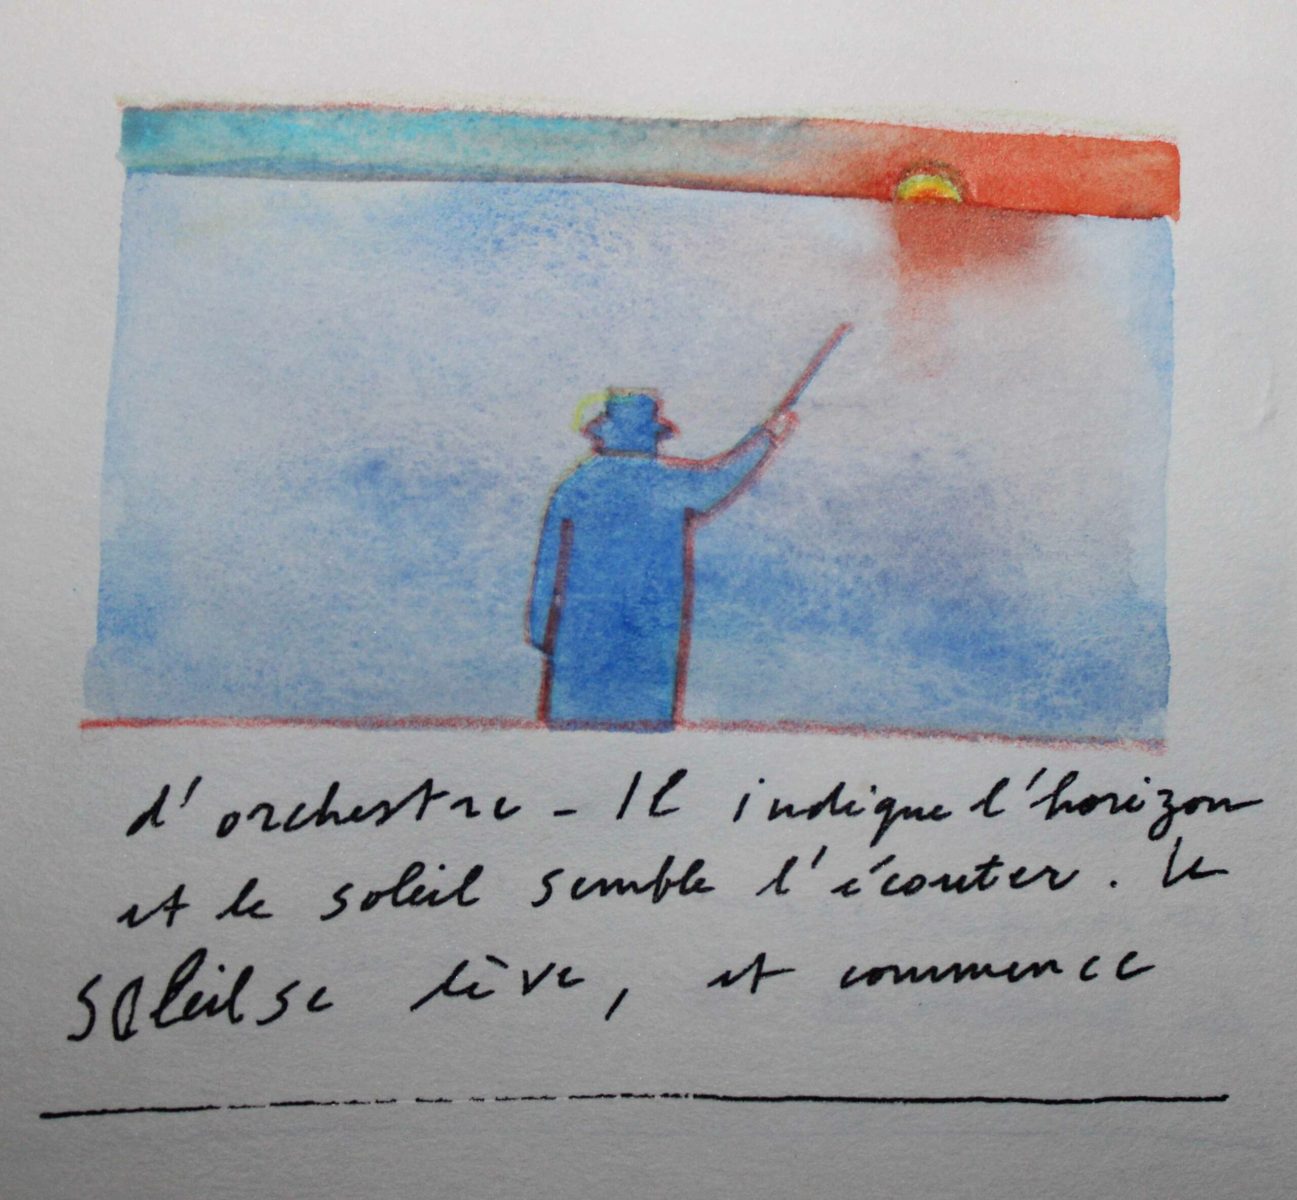 d'orchestre - Il indique l'horizon
et le soleil semble l'écouter. Le
soleil se lève, et commence